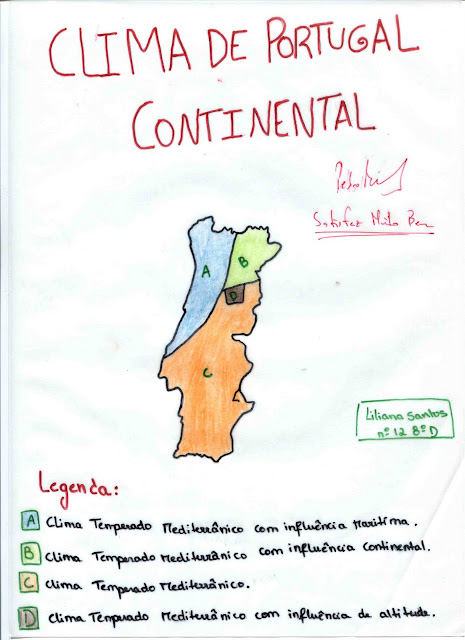 CLIMA DE PORTUGAL
CONTINENTAL
Satisfaz Muito Bem
A
B
D
C
Liliana Santos
nº 12 8º D
Legenda:
A Clima Temperado Mediterrânico com influência Marítima.
B Clima Temperado Mediterrânico com influência Continental.
C Clima Temperado Mediterrânico.
D Clima Temperado Mediterrânico com influência de altitude.